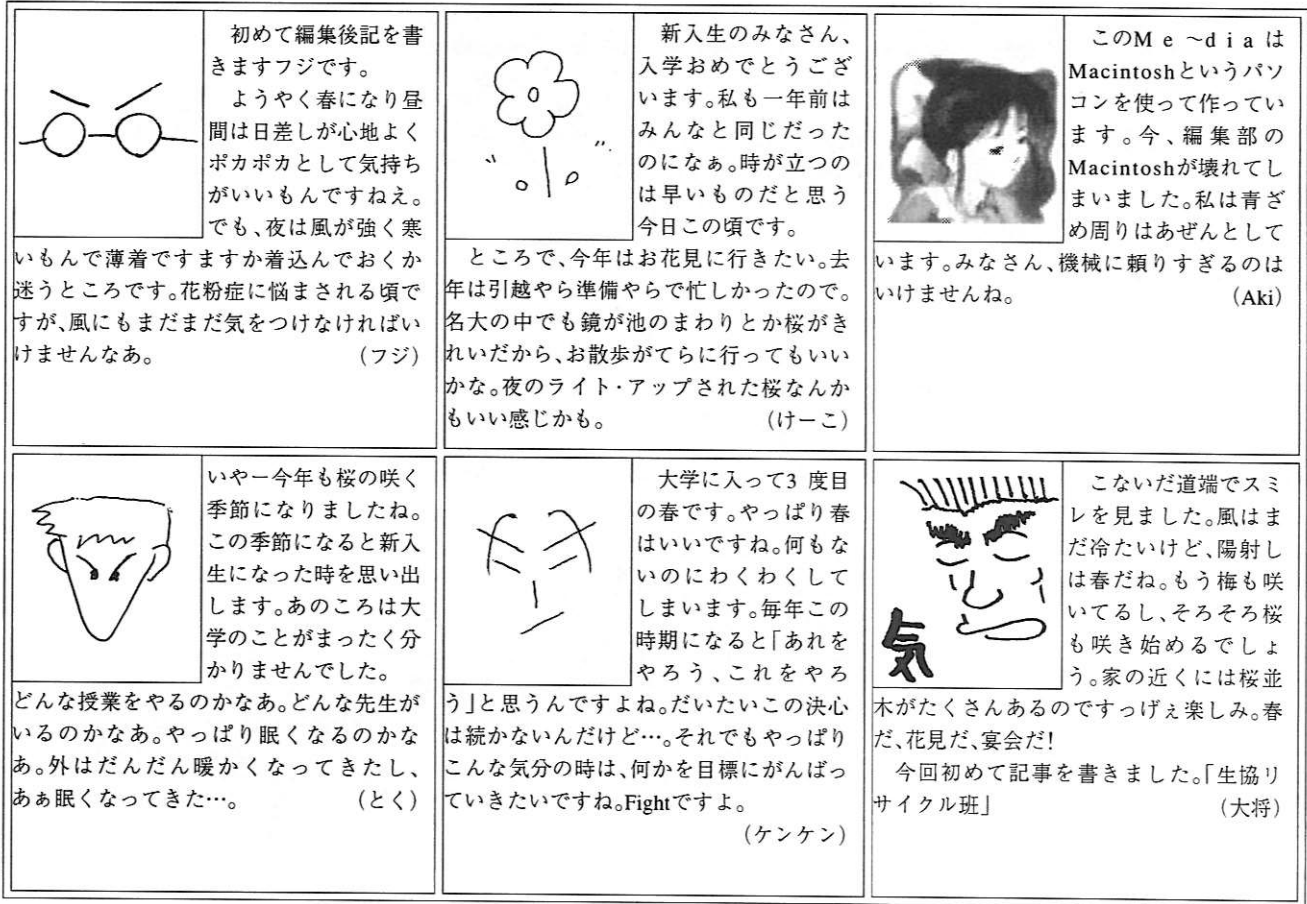 初めて編集後記を書
きますフジです。
ようやく春になり昼
間は日差しが心地よく
ポカポカとして気持ち
がいいもんですねえ。
でも、夜は風が強く寒
いもんで薄着ですますか着込んでおくか
迷うところです。花粉症に悩まされる頃で
すが、風にもまだまだ気をつけなければい
けませんなあ。 (フジ)
新入生のみなさん、
入学おめでとうござ
います。私も一年前は
みんなと同じだった
のになぁ。時が立つの
は早いものだと思う
今日この頃です。
ところで、今年はお花見に行きたい。去
年は引越やら準備やらで忙しかったので。
名大の中でも鏡が池のまわりとか桜がき
れいだから、お散歩がてらに行ってもいい
かな。夜のライト・アップされた桜なんか
もいい感じかも。 (けーこ)
このMe~diaは
Macintoshというパソ
コンを使って作ってい
ます。今、編集部の
Macintoshが壊れてし
まいました。私は青ざ
め周りはあぜんとして
います。みなさん、機械に頼りすぎるのは
いけませんね。 (Aki)
いやー今年も桜の咲く
季節になりましたね。
この季節になると新入
生になった時を思い出
します。あのころは大
学のことがまったく分
かりませんでした。
どんな授業をやるのかなあ。どんな先生が
いるのかなあ。やっぱり眠くなるのかな
あ。外はだんだん暖かくなってきたし、
あぁ眠くなってきた…。 (とく)
大学に入って3度目
の春です。やっぱり春
はいいですね。何もな
いのにわくわくして
しまいます。毎年この
時期になると「あれを
やろう、これをやろ
う」と思うんですよね。だいたいこの決心
は続かないんだけど…。それでもやっぱり
こんな気分の時は、何かを目標にがんばっ
ていきたいですね。Fightですよ。
(ケンケン)
気
こないだ道端でスミ
レを見ました。風はま
だ冷たいけど、陽射し
は春だね。もう梅も咲
いてるし、そろそろ桜
も咲き始めるでしょ
う。家の近くには桜並
木がたくさんあるのですっげぇ楽しみ。春
だ、花見だ、宴会だ!
今回初めて記事を書きました。「生協リ
サイクル班」 (大将)